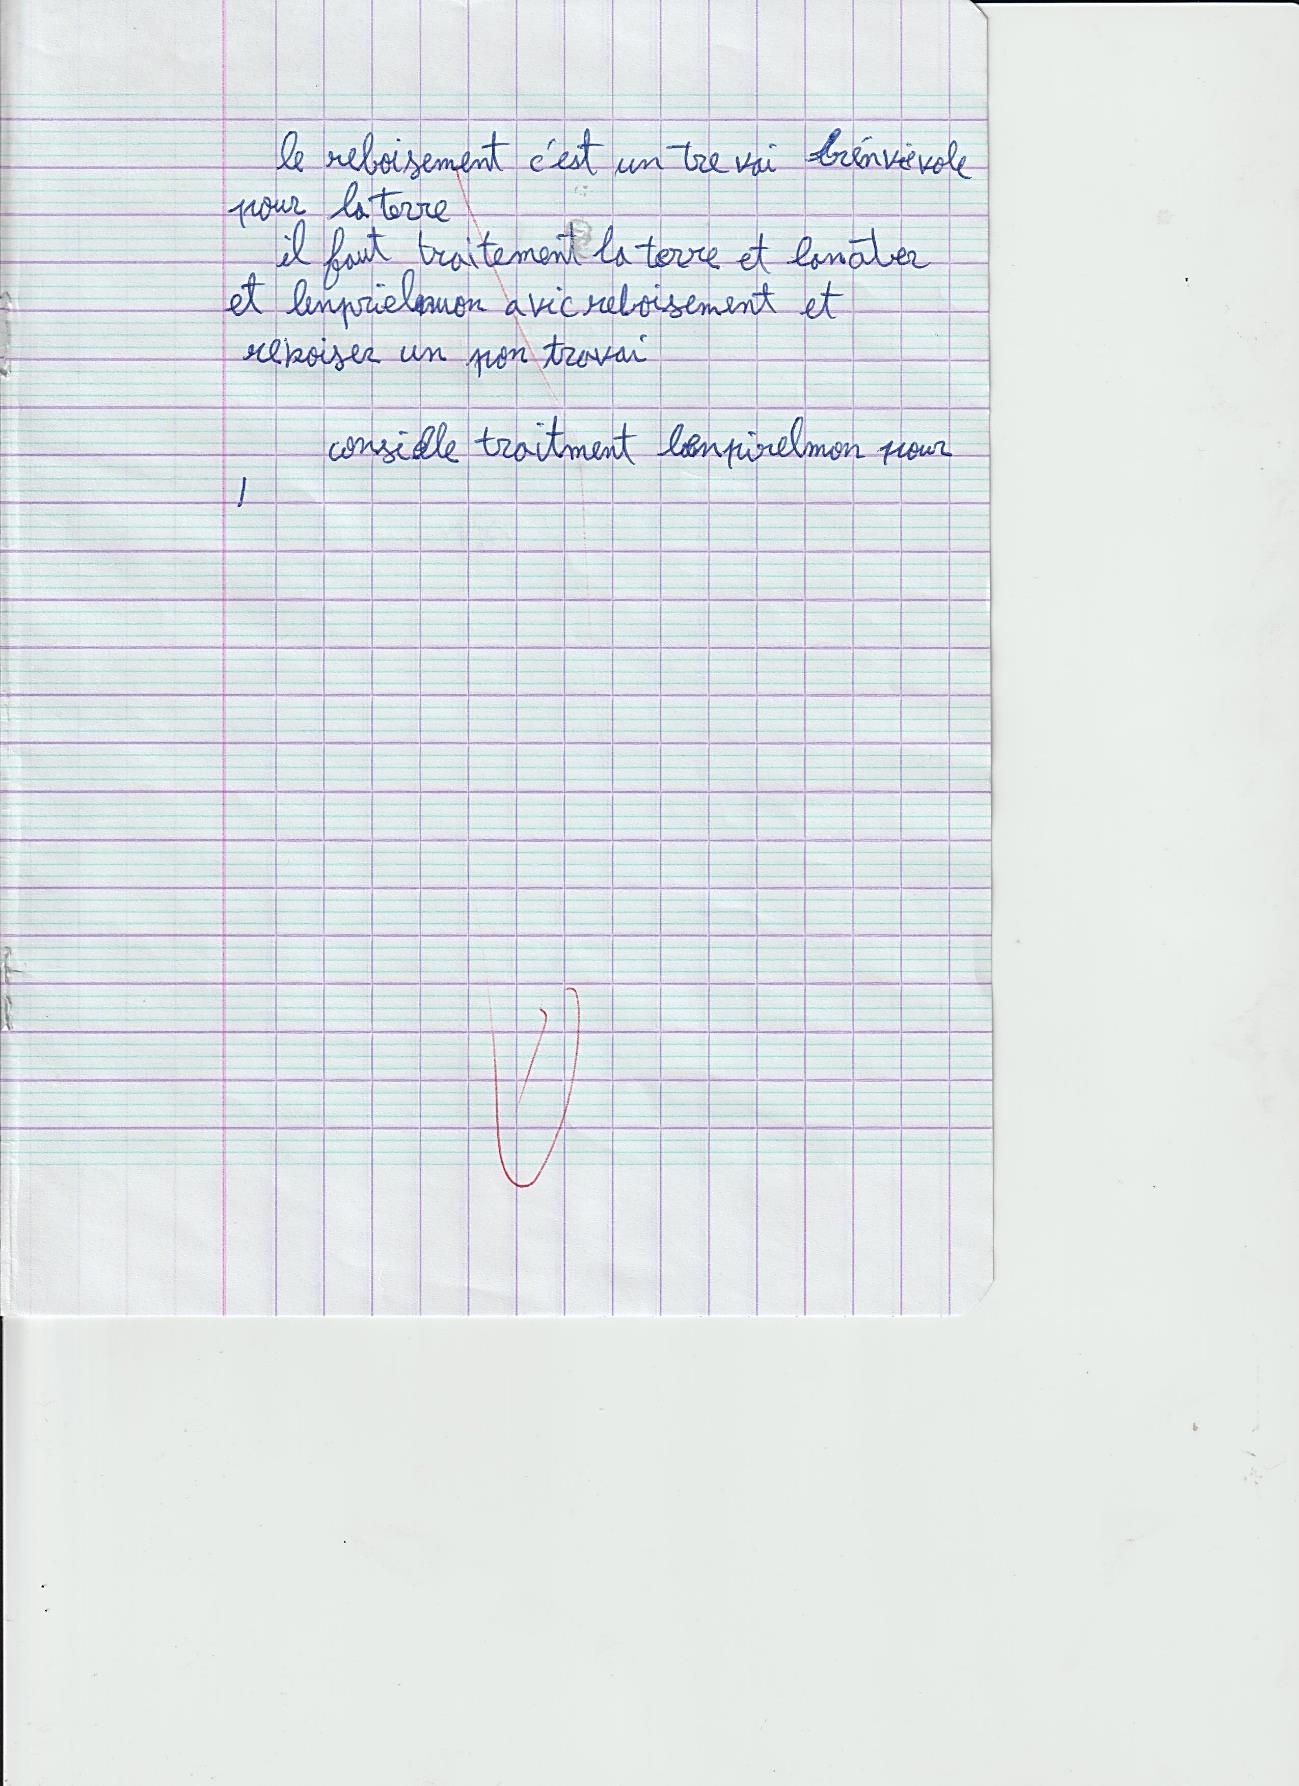 le reboisement c'est un tre vai bénviévole
pour la terre
il faut traitement la terre et lanater
et lenprielmon avic reboisement et
reboiser un pon travai
consielle traitment lenpirelmon pour
l